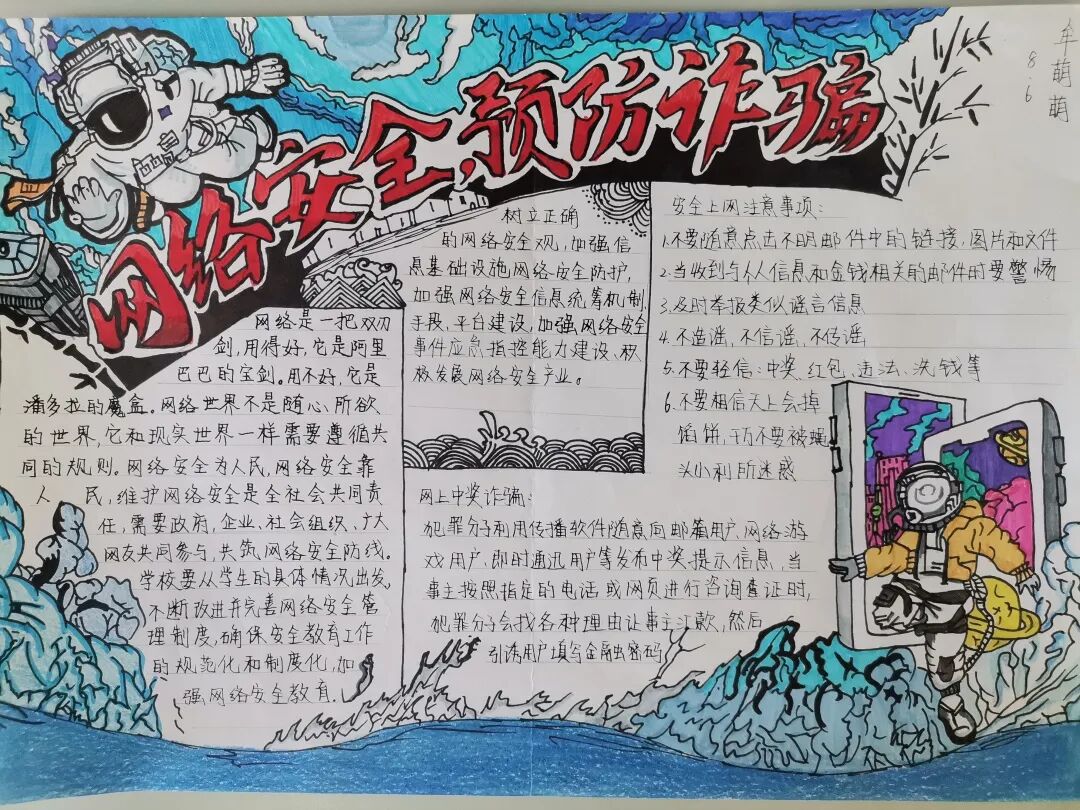 网络安全，预防诈骗
牟萌萌
8.6
网络是一把双刃
剑，用得好，它是阿里
巴巴的宝剑。用不好，它是
潘多拉的魔盒。网络世界不是随心、所欲
的世界，它和现实世界一样需要遵循共
同的规则。网络安全为人民，网络安全靠
人民，维护网络安全是全社会共同责
任，需要政府，企业、社会组织、广大
网友共同参与，共筑网络安全防线。
学校要从学生的具体情况出发。
不断改进并完善网络安全管
理制度，确保安全教育工作
的规范化和制度化，加
强网络安全教育.
树立正确
的网络安全观，加强信
息基础设施网络安全防护，
加强网络安全信息统筹机制
手段，平台建设，加强网络安全
事件应急指挥能力建设、积
极发展网络安全产业。
安全上网注意事项：
1.不要随意点击不明邮件中的链接，图片和文件
2.当收到与个人信息和金钱相关的邮件时要警惕
3.及时举报类似谣言信息
4.不造谣，不信谣，不传谣，
5.不要轻信：中奖、红包、违法、洗钱等
6.不要相信天上会掉
馅饼，千万不要被
头小利所迷惑
网上中奖诈骗：
犯罪分子利用传播软件随意向邮箱用户、网络游
戏用户、即时通迅用户等发布中奖提示信息，当
事主按照指定的电话或网页进行咨询查证时，
犯罪分子会找各种理由让事主汇款，然后
引诱用户填写金融密码